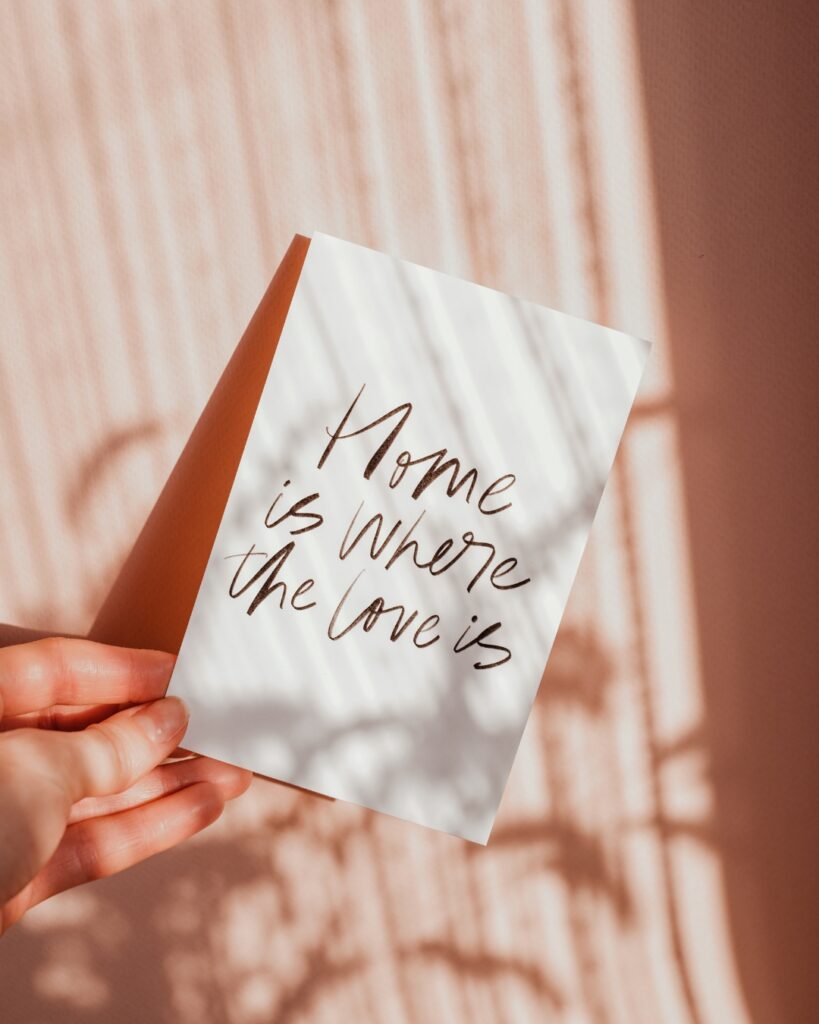 Home
is Where
the Love is